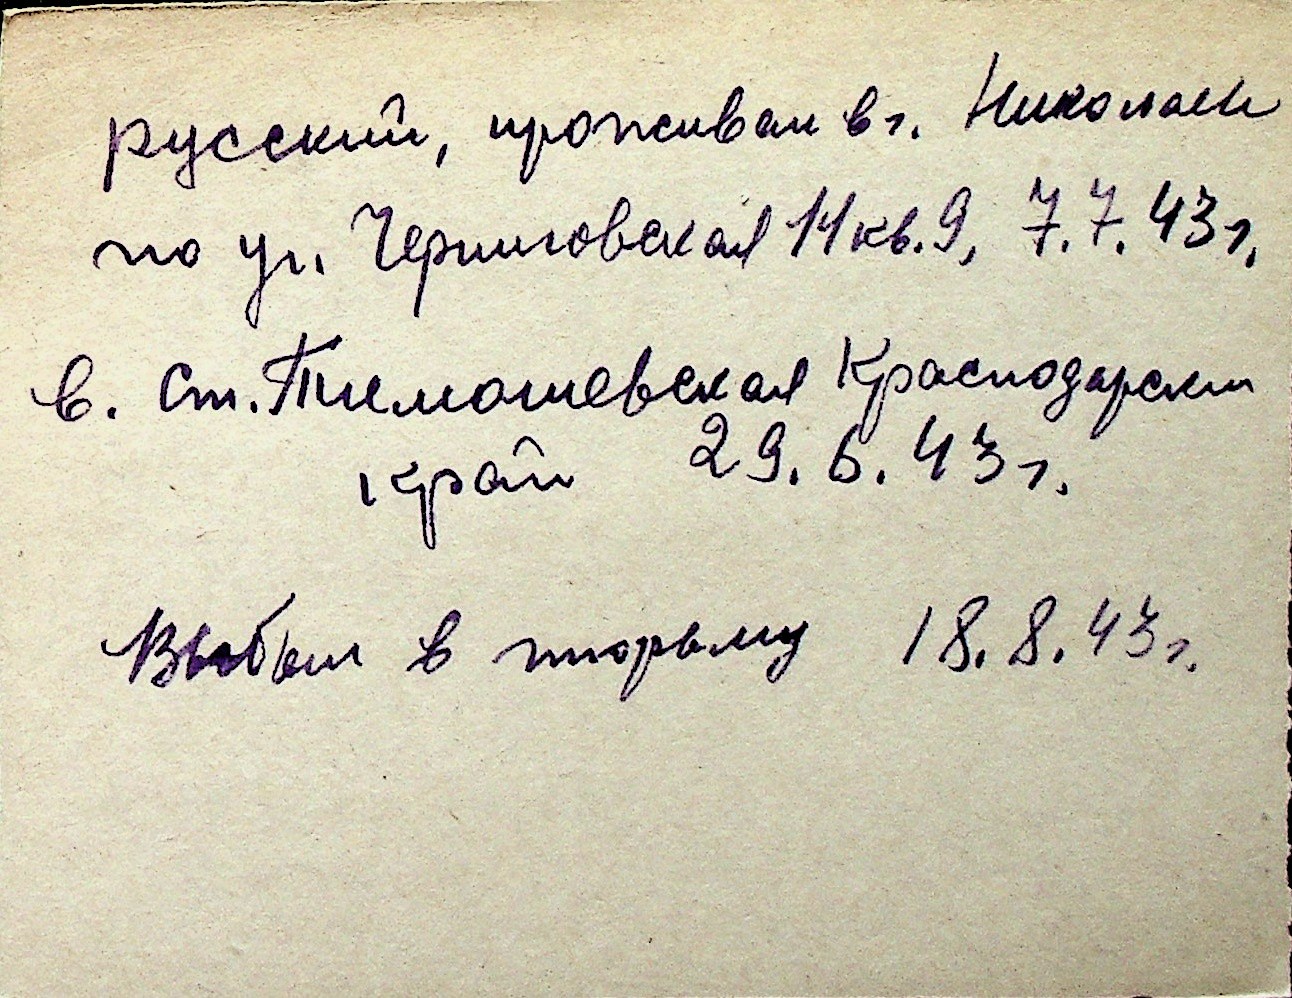 русский, проживал в г. Николаев
по ул. Черниговская 14 кв. 9, 7.7.43 г.
в. ст. Тимошевская Краснодарский
край 29.6.43 г.
Выбыл в тюрьму 18.8.43 г.